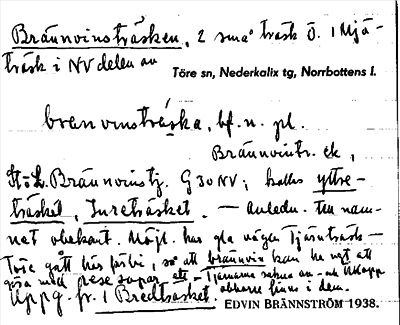 Brännvinsträsken, 2 små träsk Ö. i Mjö-
träsk i NV delen av
Töre sn, Nederkalix tg, Norrbottens l.
bränvinsträska, bf. n. pl.
Brännvintr. ek,
St. o. L. Brännvinstj. G 30 NV; kallas yttre-
träsket, Inreträsket. — Anledn. till nam-
net obekant. Möjl. har gla vägen Tjärnträsk –
Töre gått här förbi, så att brännvin kan ha nytt att
göra med resesupar att
Uppg. fr. i Bredträsket.
EDVIN BRÄNNSTRÖM 1938.